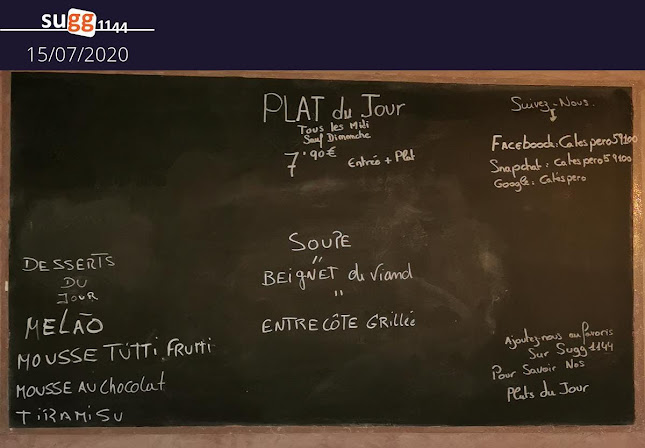 sugg1144
15/07/2020
PLAT du JOUR
Tous les Midi
Sauf Dimanche
7.90€ Entrée + Plat
Suivez-Nous.
Facebook: Catespero59100
Snapchat: Catespero59100
Google: Catespero
SOUPE
"
BEIGNET de Viand
"
ENTRECÔTE GRILLÉE
DESSERTS
DU
JOUR
MELÃO
MOUSSE TUTTI FRUTTI
MOUSSE AU CHOCOLAT
TIRAMISU
Ajoutez-nous au favoris
Sur Sugg1144
Pour Savoir Nos
Plats du Jour